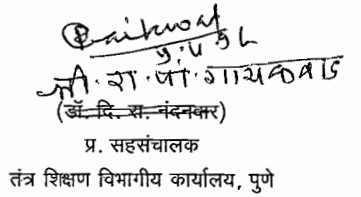 श्री. रा. पां. गायकवाड
(डॉ. दि. रा. नंदनवार)
प्र. सहसंचालक
तंत्र शिक्षण विभागीय कार्यालय, पुणे